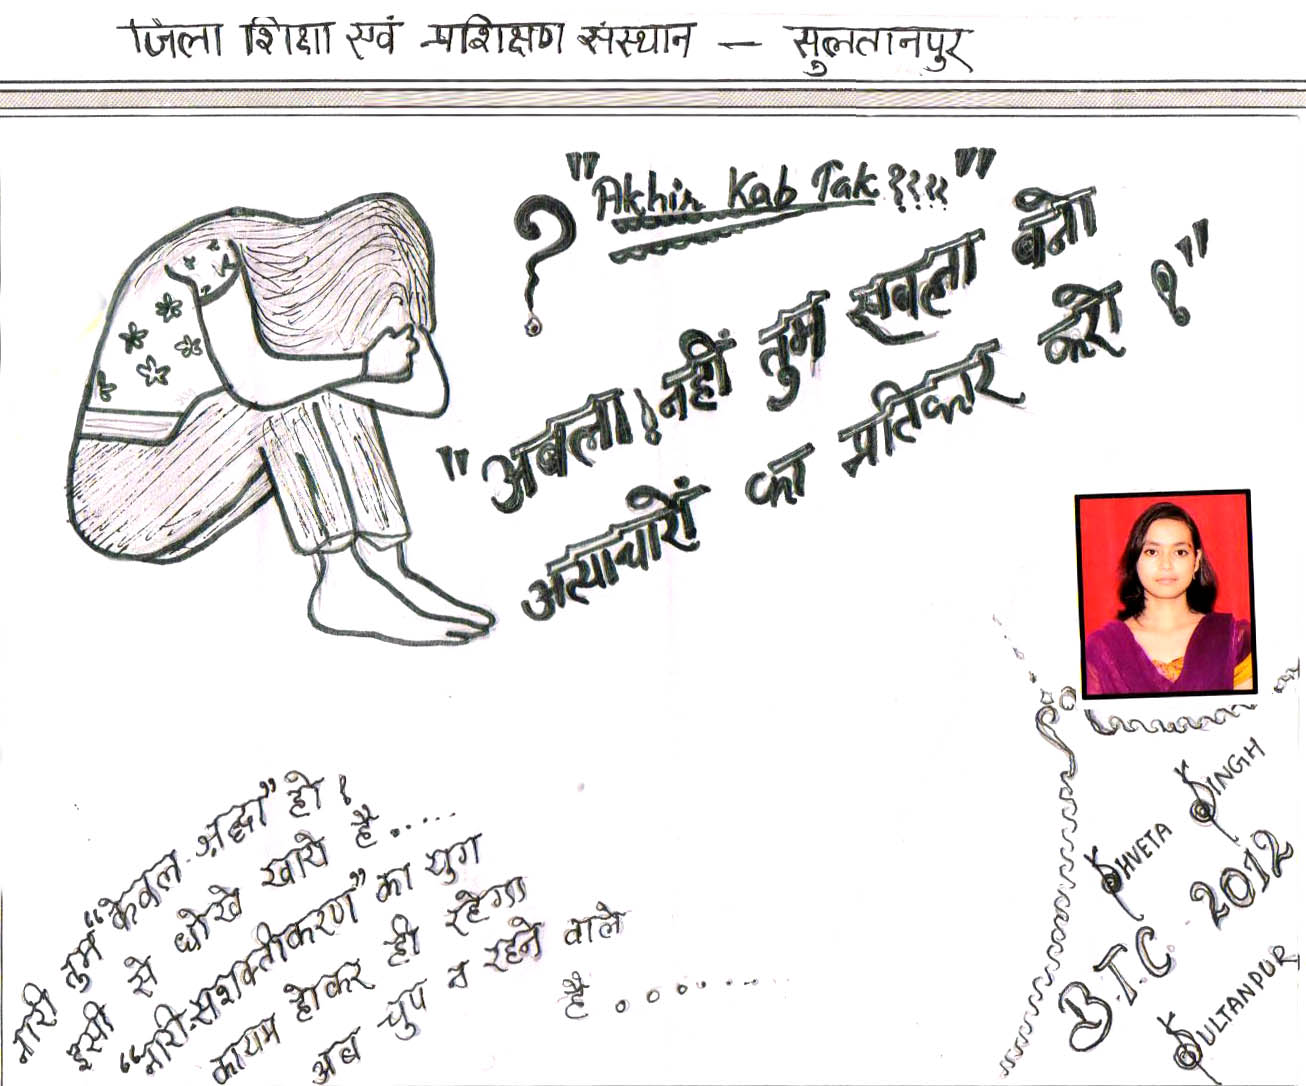 जिला शिक्षा एवं प्रशिक्षण संस्थान — सुलतानपुर
? "Akhir Kab Tak????"
"अबला! नहीं तुम सबला बनो
अत्याचारों का प्रतिकार करो !"
नारी तुम "केवल श्रद्धा" हो !
इसी से धोखे खाये है.....
"नारी-सशक्तीकरण" का युग
कायम होकर ही रहेगा
अब चुप न रहने वाले
है .........
SHVETA SINGH
B.T.C. 2012
SULTANPUR